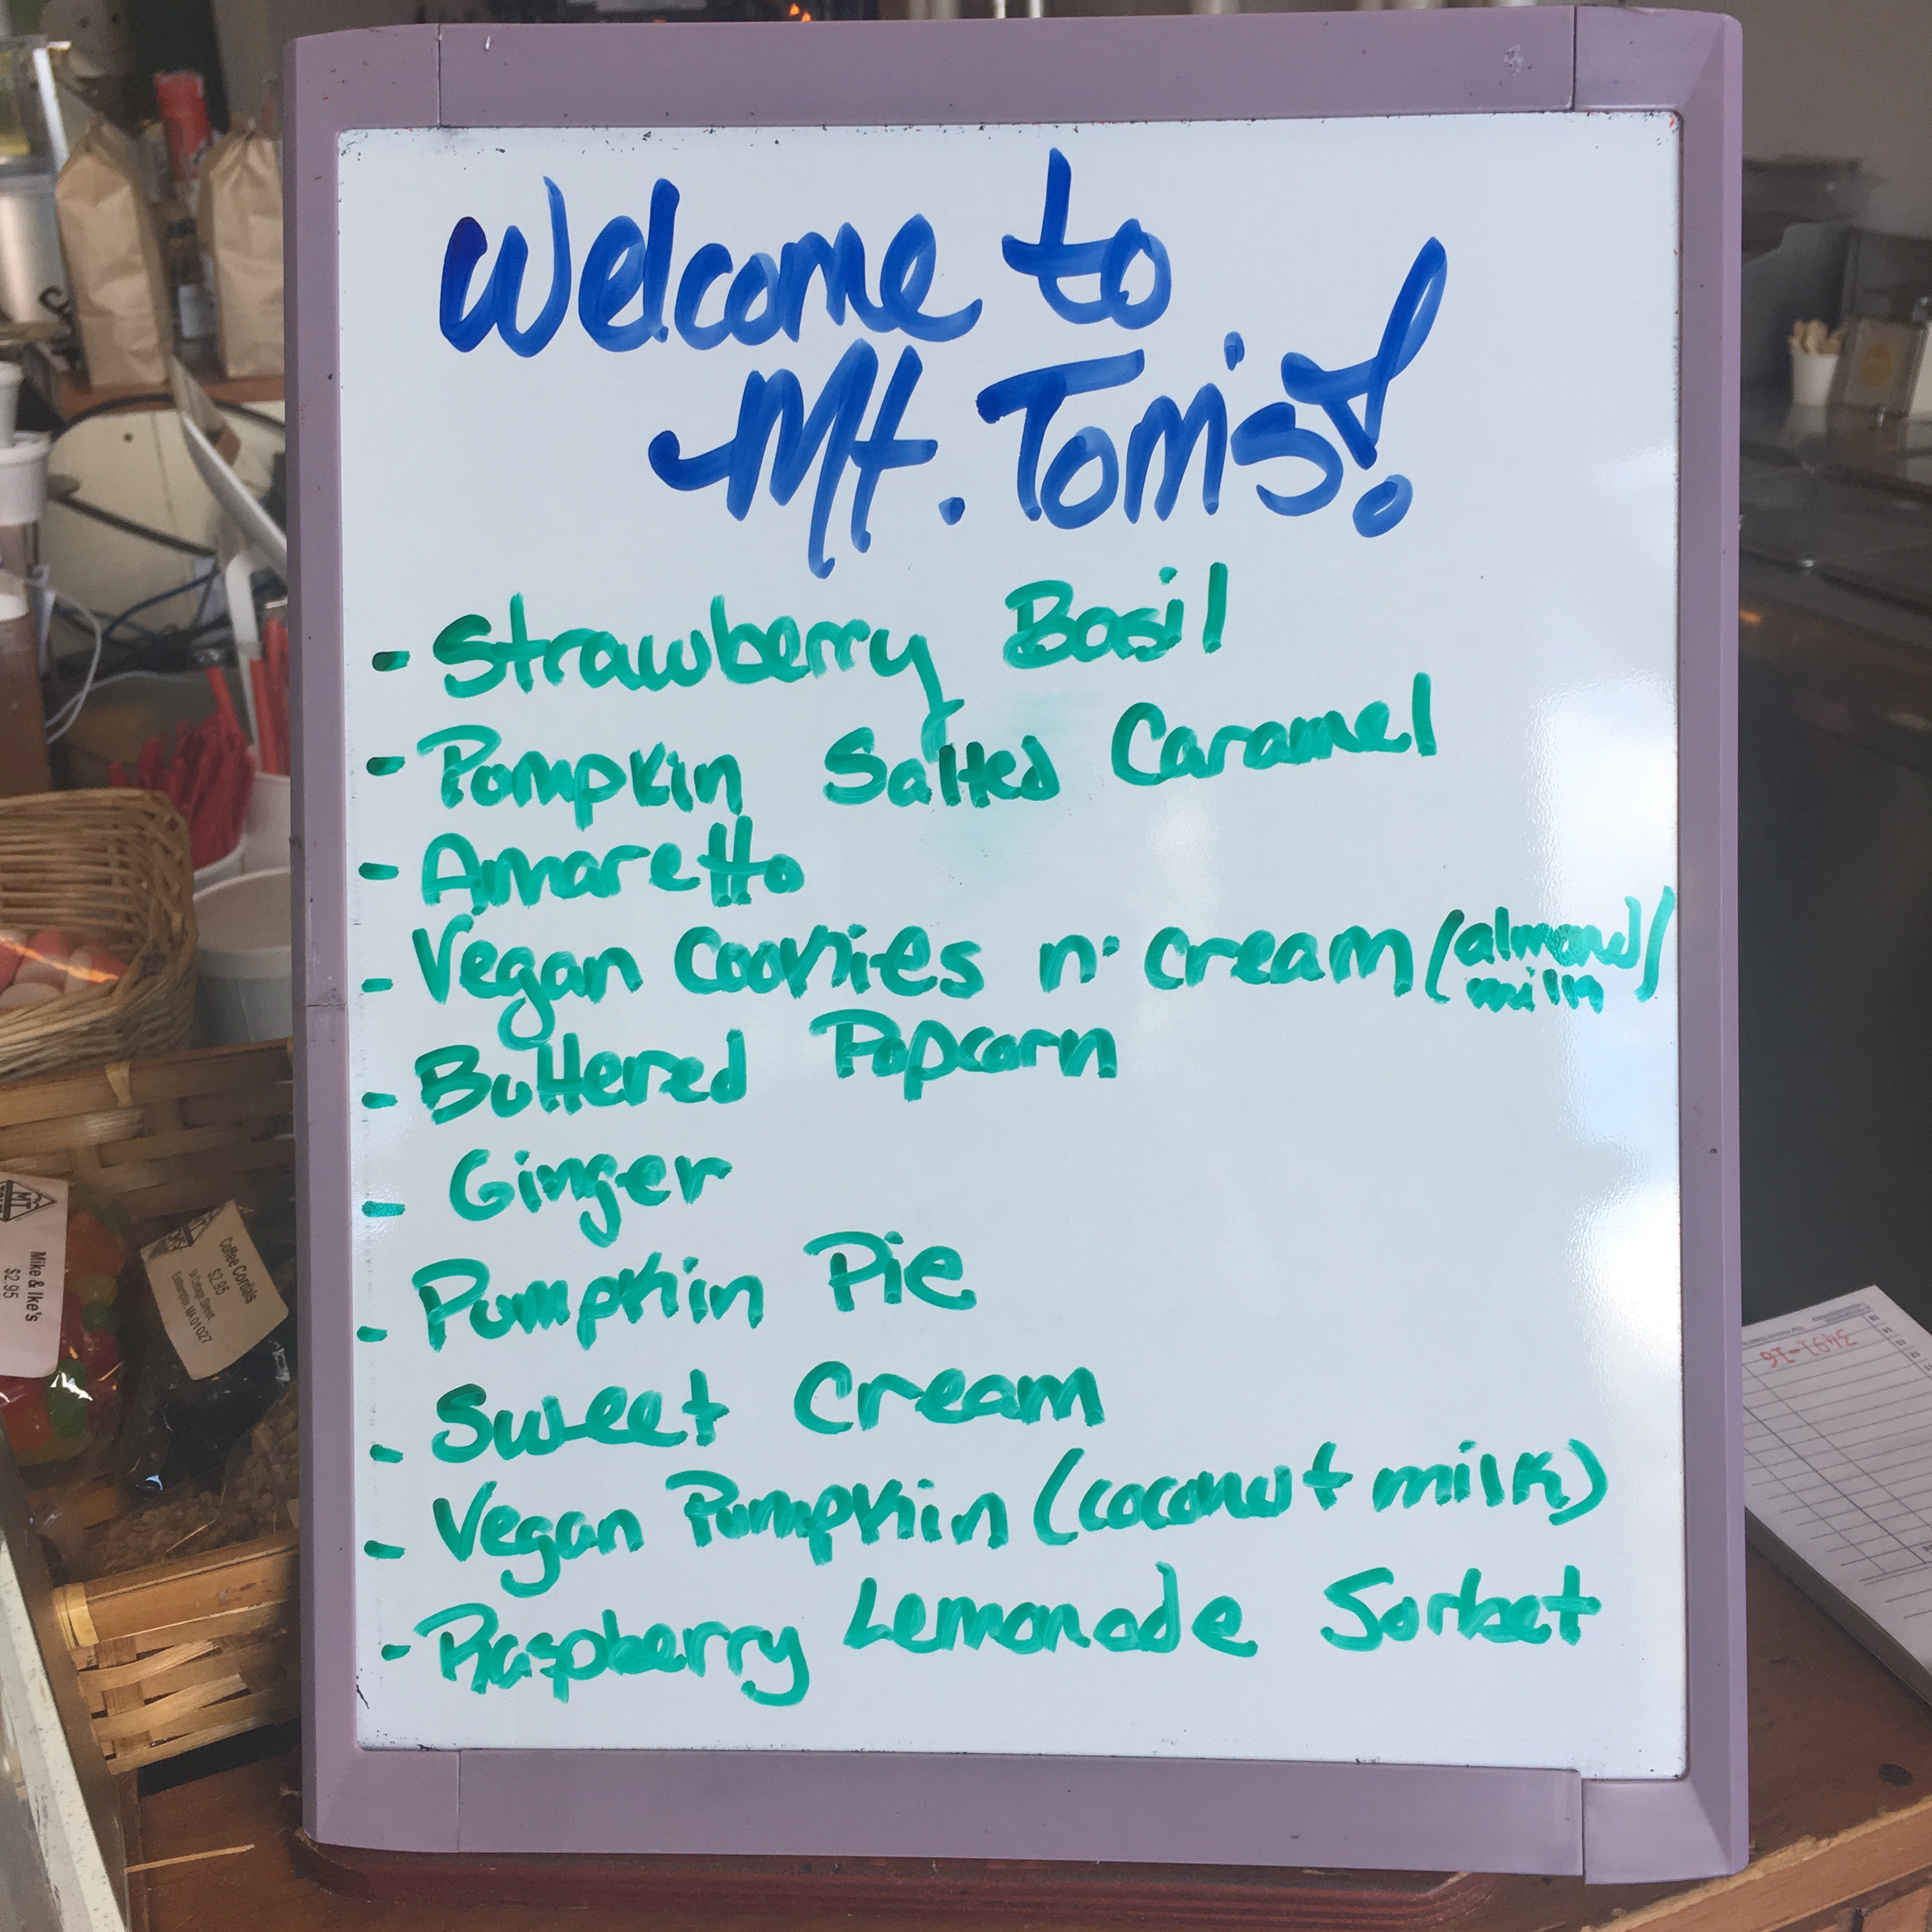 Welcome to
Mt. Tom's!
- Strawberry Basil
- Pumpkin Salted Caramel
- Amaretto
- Vegan Cookies n' Cream (almond
milk)
- Buttered Popcorn
- Ginger
- Pumpkin Pie
- Sweet Cream
- Vegan Pumpkin (coconut milk)
- Raspberry Lemonade Sorbet
Mike & Ike's
$2.95
Coffee Cordials
$2.95
Cottage Street
Easthampton, MA 01027
3491-16